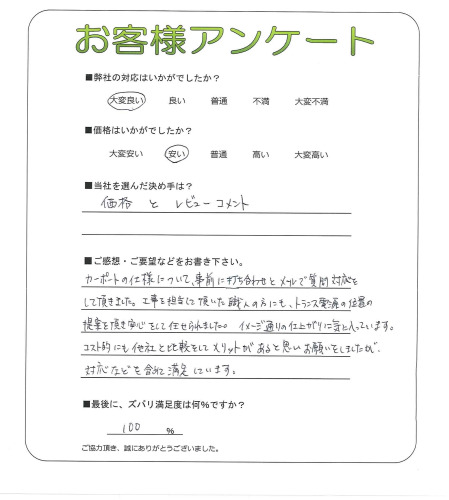 お客様アンケート
■弊社の対応はいかがでしたか？
大変良い 良い 普通 不満 大変不満
■価格はいかがでしたか？
大変安い 安い 普通 高い 大変高い
■当社を選んだ決め手は？
価格 と レビューコメント
■ご感想・ご要望などをお書き下さい。
カーポートの仕様について、事前に打ち合わせとメールで質問対応を
して頂きました。工事を担当して頂いた職人の方にも、トランス電源の位置の
提案を頂き安心をして任せられました。イメージ通りの仕上がりに気と入っています。
コスト的にも他社と比較をしてメリットがあると思いお願いをしましたが、
対応なども含めて満足しています。
■最後に、ズバリ満足度は何%ですか？
100 %
ご協力頂き、誠にありがとうございました。